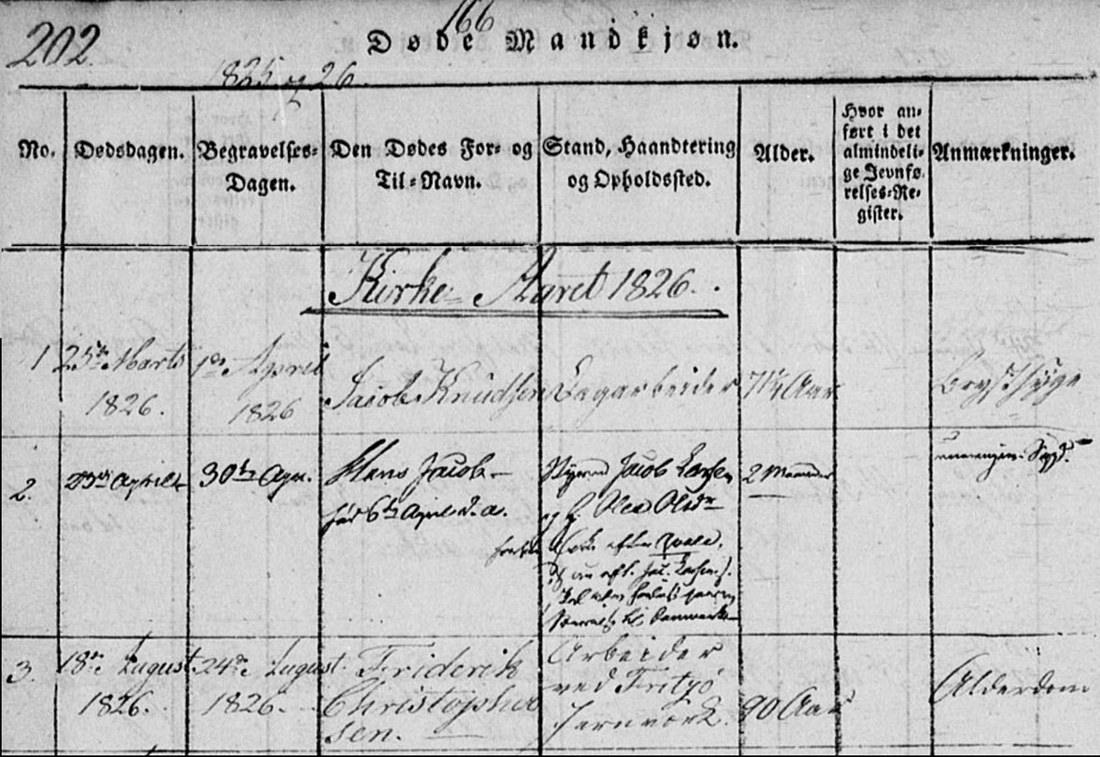 202.
166
Døde Mandkjøn.
1825 og 26.
No.
Dødsdagen.
Begravelses-
Dagen.
Den Dødes For- og
Til-Navn.
Stand, Haandtering
og Opholdssted.
Alder.
Hvor an-
ført i det
almindeli-
ge Jevnfø-
relses-Re-
gister.
Anmærkninger.
Kirke-Aaret 1826.
1
25de Marts
1826.
1de April
1826
Jacob Knudsen
Sagarbeider
71½ Aar
Brystsyge
2.
April
30te Apr.
Hans Jacob
6te April d. a.
Jacob Larsen
og
Olsdr
efter
2
3.
18de August
1826.
24de August
1826.
Friderik
Christopher
sen.
Arbeider
ved Fritzø
Jernværk.
90 Aar
Alderdom